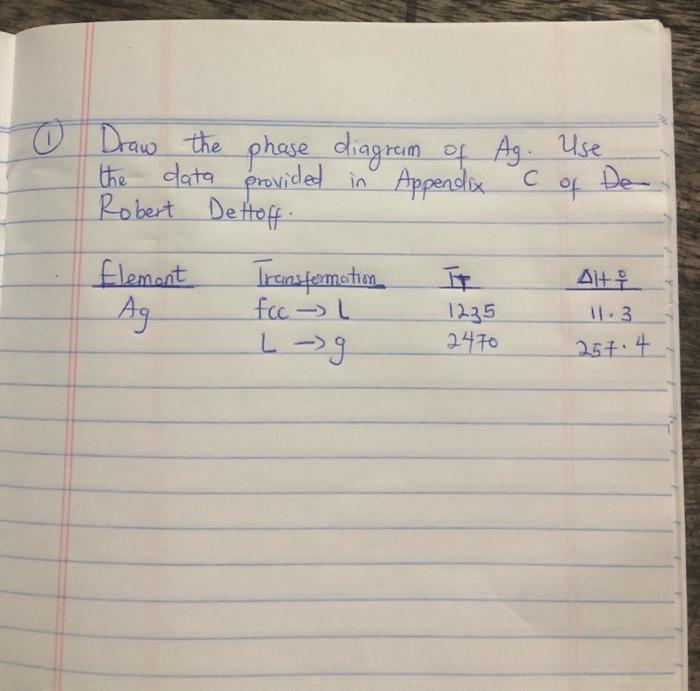 ① Draw the phase diagram of Ag. Use
the data provided in Appendix C of De
Robert Dettoff.
Element Transformation T_T ΔH°_T
Ag fcc → L 1235 11.3
L → g 2470 257.4